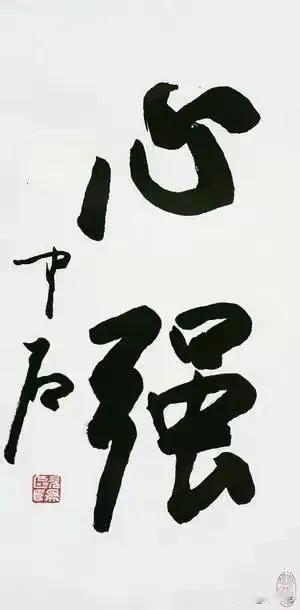 心强
中石